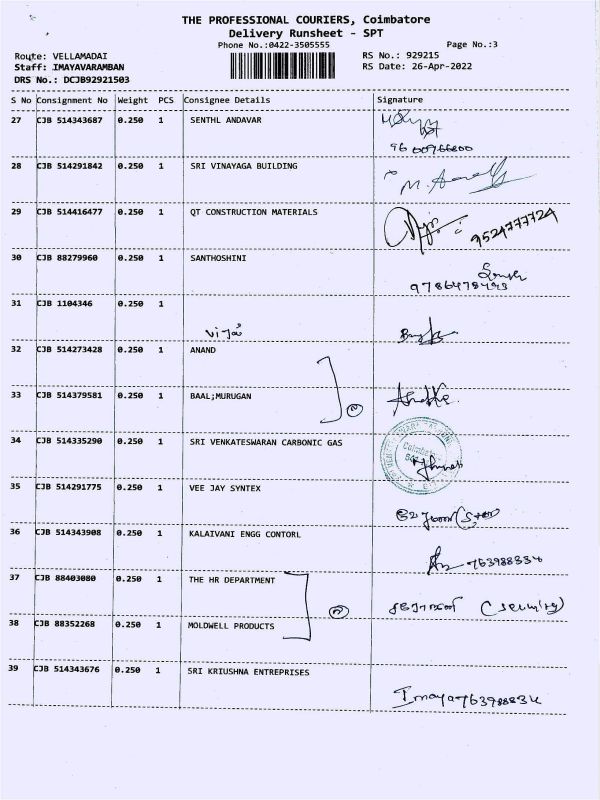 THE PROFESSIONAL COURIERS, Coimbatore
Delivery Runsheet - SPT
Phone No.:0422-3505555
Page No.:3
Route: VELLAMADAI
RS No.: 929215
Staff: IMAYAVARAMBAN
RS Date: 26-Apr-2022
DRS No.: DCJB92921503
S No Consignment No Weight PCS Consignee Details Signature
27 CJB 514343687 0.250 1 SENTHL ANDAVAR
9600966800
28 CJB 514291842 0.250 1 SRI VINAYAGA BUILDING
29 CJB 514416477 0.250 1 QT CONSTRUCTION MATERIALS
9524777724
30 CJB 88279960 0.250 1 SANTHOSHINI
31 CJB 1104346 0.250 1
32 CJB 514273428 0.250 1 ANAND
33 CJB 514379581 0.250 1 BAAL;MURUGAN
34 CJB 514335290 0.250 1 SRI VENKATESWARAN CARBONIC GAS
Coimbatore
35 CJB 514291775 0.250 1 VEE JAY SYNTEX
36 CJB 514343908 0.250 1 KALAIVANI ENGG CONTORL
37 CJB 88403080 0.250 1 THE HR DEPARTMENT
38 CJB 88352268 0.250 1 MOLDWELL PRODUCTS
39 CJB 514343676 0.250 1 SRI KRIUSHNA ENTREPRISES